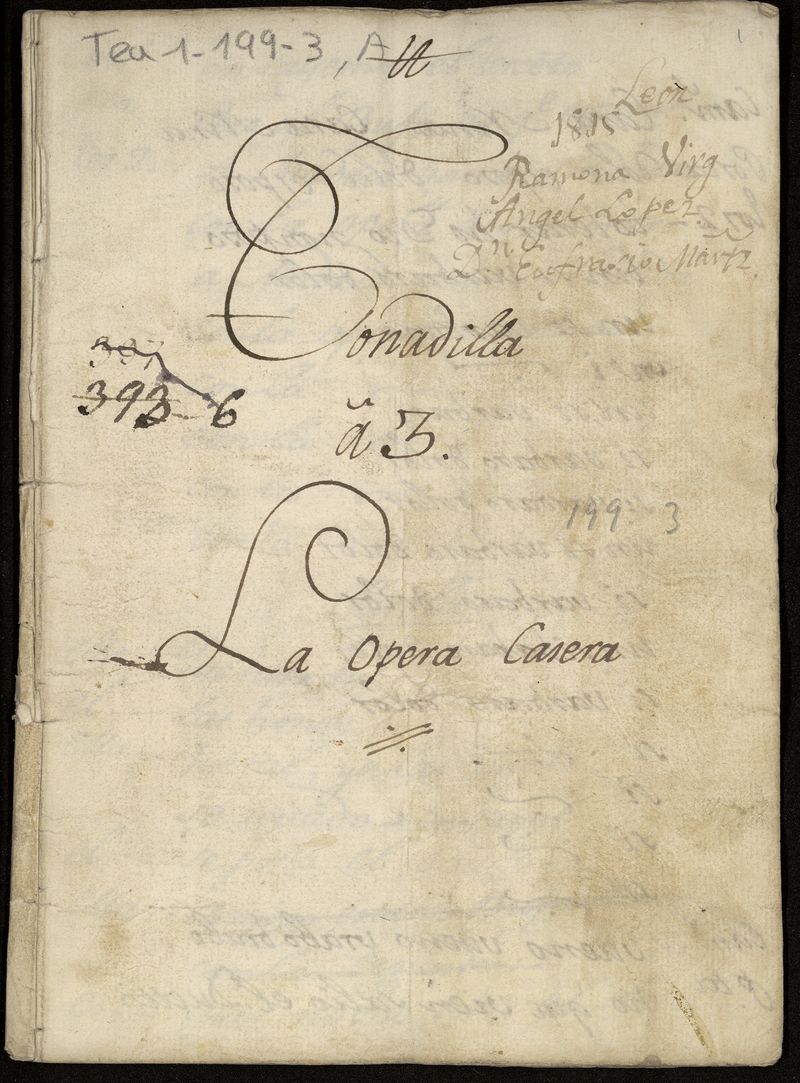 Tea 1-199-3, A
1
Leon
1815
Ramona Virg
Angel Lopez
Dn. Eufrasio Martz.
Tonadilla
307
393 6
â 3.
199 3
La Opera Casera